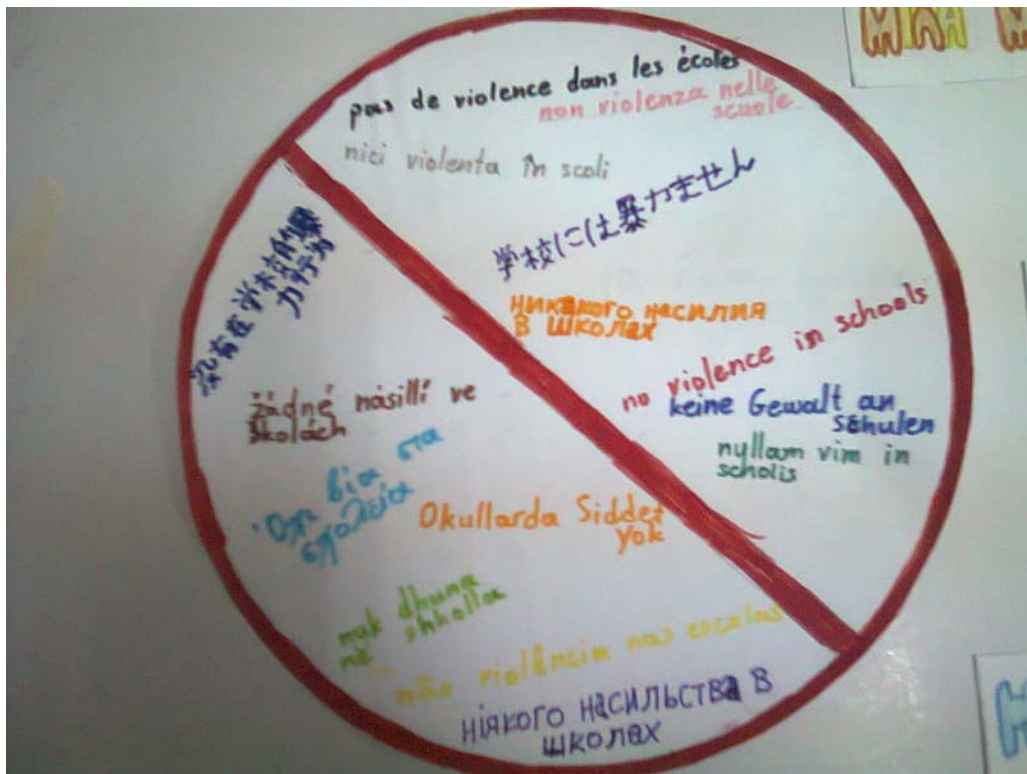 pas de violence dans les écoles
non violenza nelle
scuole
nici violenta în scoli
学校には暴力ません
никакого насилия
в школах
no violence in schools
keine Gewalt an
schulen
nyllam vim in
scholis
没有在学校的暴
力行为
žádné násillí ve
školách
Όχι βία στα
σχολεία
Okullarda Siddet
yok
nuk dhuna
në shkolla
não violência nas escolas
ніякого насильства в
школах